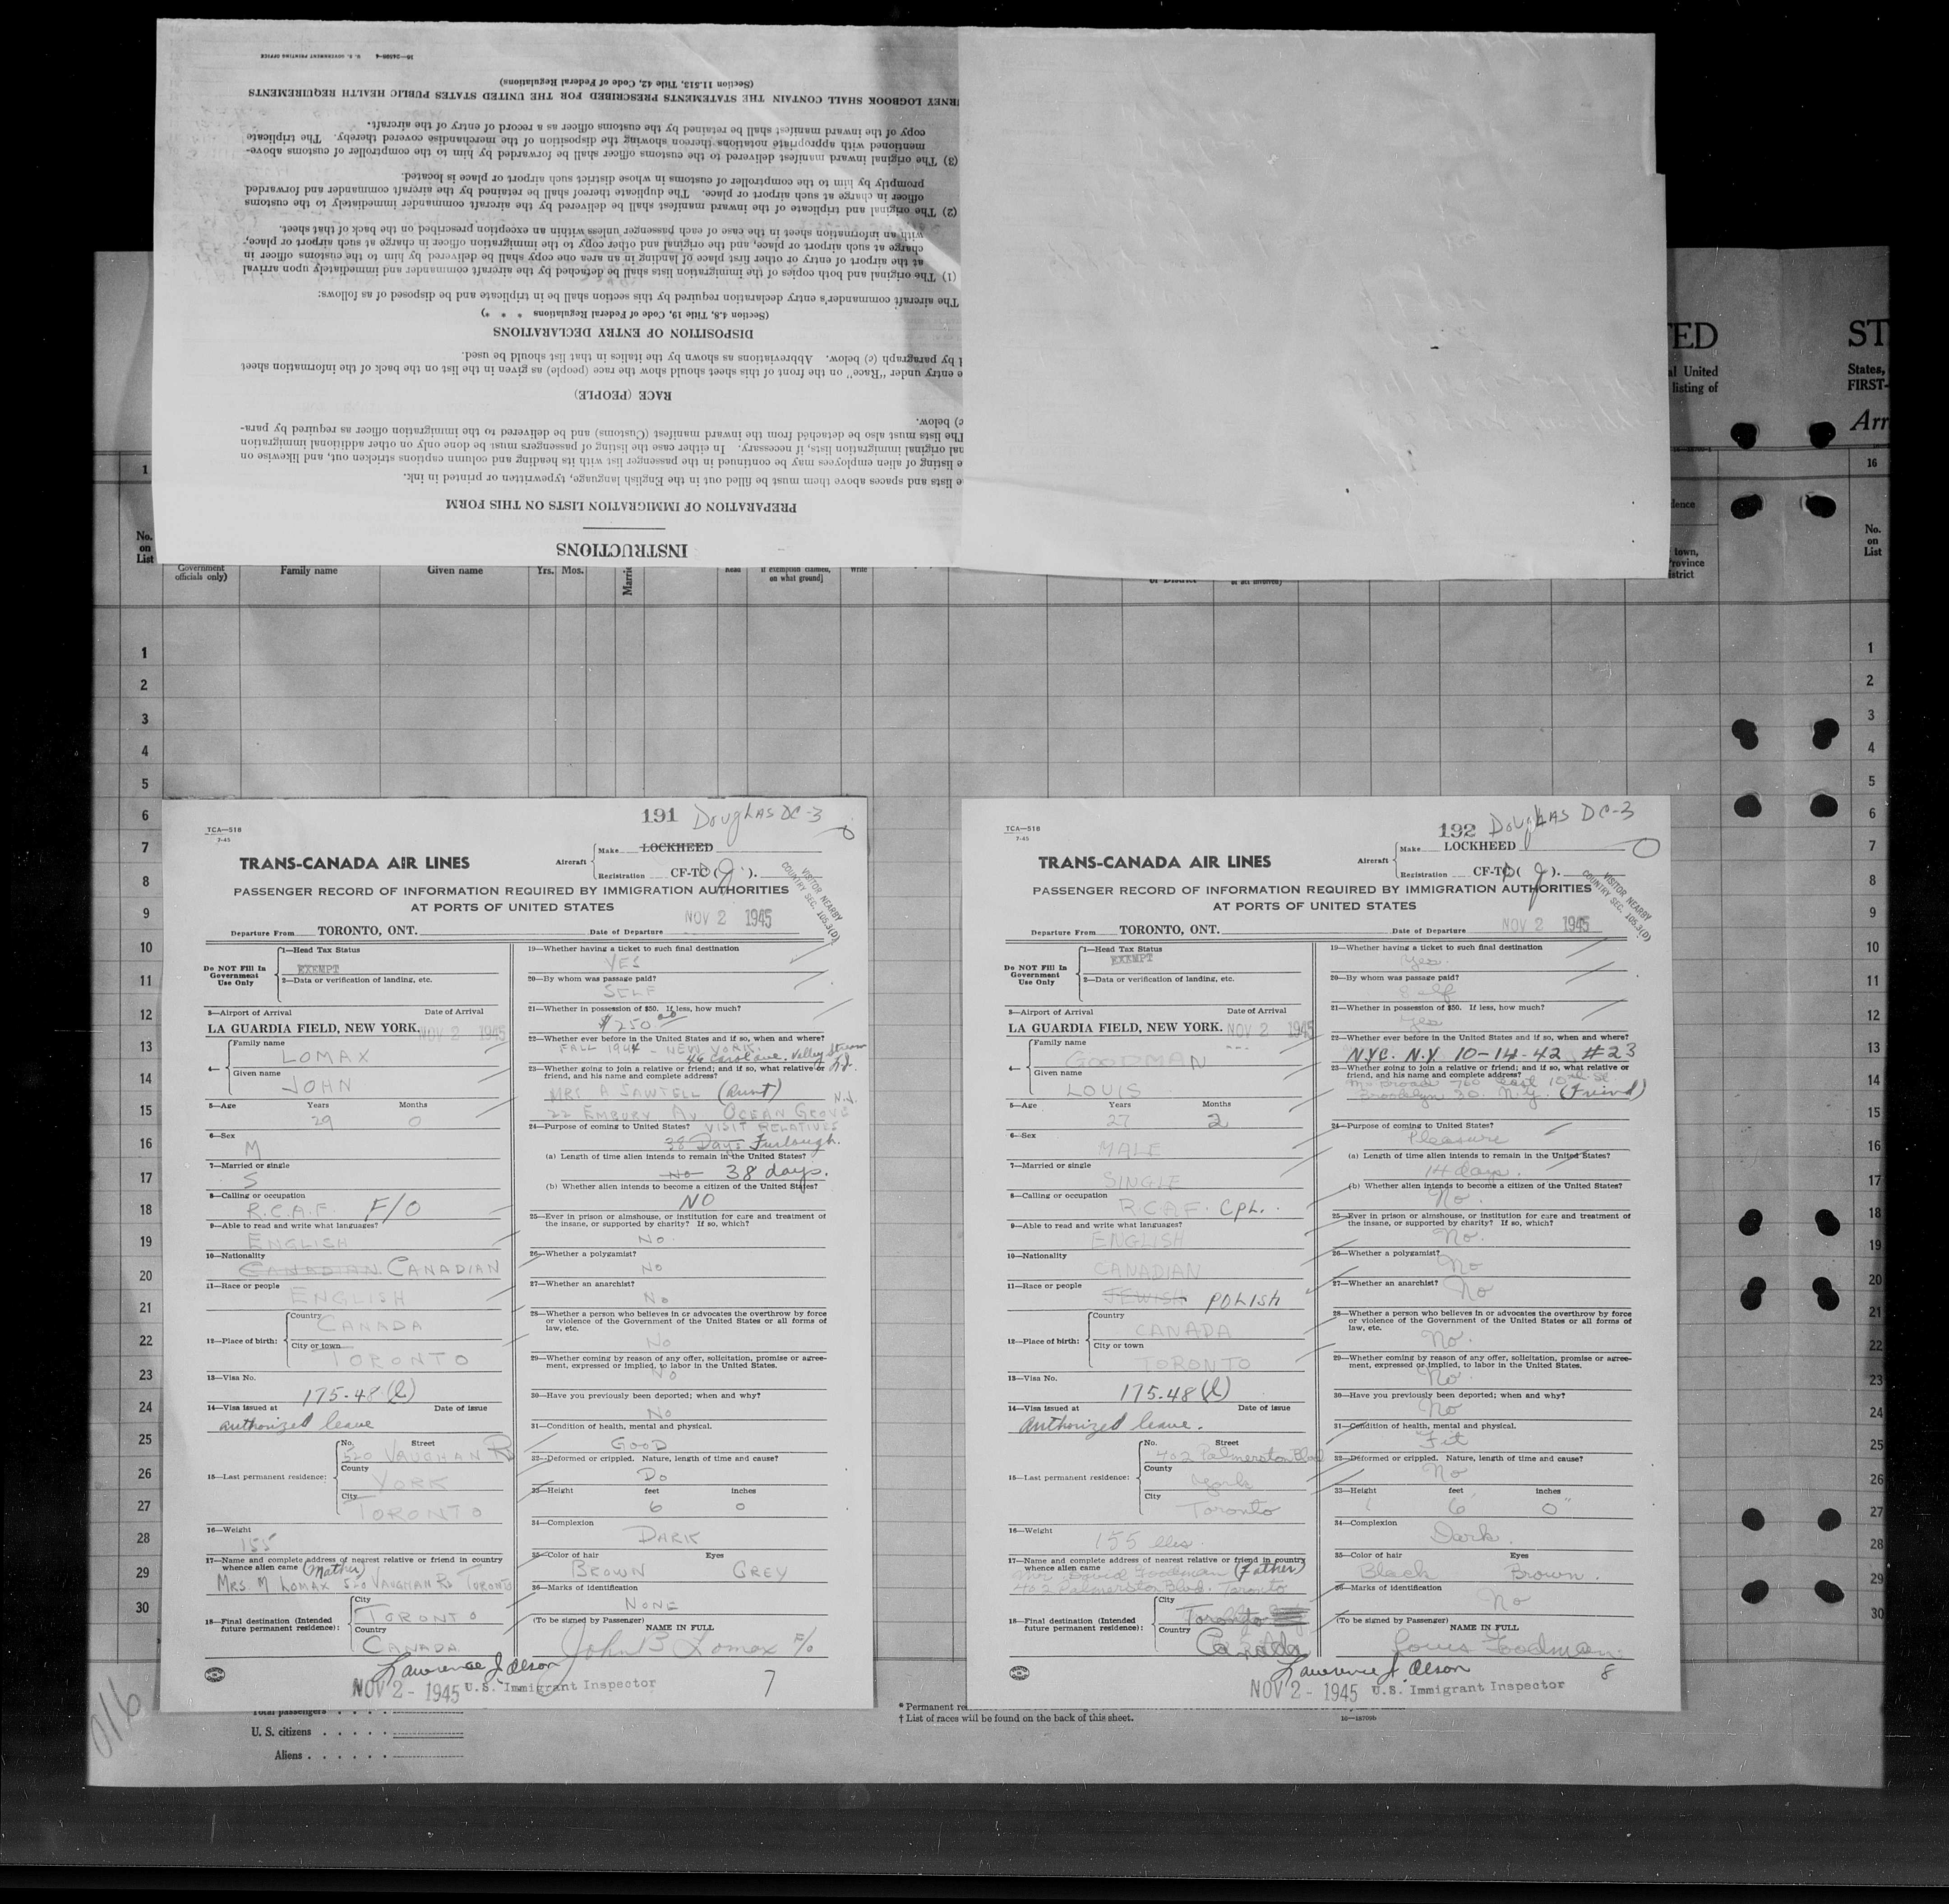 INSTRUCTIONS
PREPARATION OF IMMIGRATION LISTS ON THIS FORM
e lists and spaces above them must be filled out in the English language, typewritten or printed in ink.
e listing of alien employees may be continued in the passenger list with its heading and column captions stricken out, and likewise on
nal original immigration lists, if necessary. In either case the listing of passengers must be done only on other additional immigration
The lists must also be detached from the inward manifest (Customs) and be delivered to the immigration officer as required by para-
c) below.
RACE (PEOPLE)
e entry under "Race" on the front of this sheet should show the race (people) as given in the list on the back of the information sheet
d by paragraph (c) below. Abbreviations as shown by the italics in that list should be used.
DISPOSITION OF ENTRY DECLARATIONS
(Section 4.8, Title 19, Code of Federal Regulations * * *)
The aircraft commander's entry declaration required by this section shall be in triplicate and be disposed of as follows:
(1) The original and both copies of the immigration lists shall be detached by the aircraft commander and immediately upon arrival
at the airport of entry or other first place of landing in an area one copy shall be delivered by him to the customs officer in
charge at such airport or place, and the original and other copy to the immigration officer in charge at such airport or place,
with an information sheet in the case of each passenger unless within an exception prescribed on the back of that sheet.
(2) The original and triplicate of the inward manifest shall be delivered by the aircraft commander immediately to the customs
officer in charge at such airport or place. The duplicate thereof shall be retained by the aircraft commander and forwarded
promptly by him to the comptroller of customs in whose district such airport or place is located.
(3) The original inward manifest delivered to the customs officer shall be forwarded by him to the comptroller of customs above-
mentioned with appropriate notations thereon showing the disposition of the merchandise covered thereby. The triplicate
copy of the inward manifest shall be retained by the customs officer as a record of entry of the aircraft.
RNEY LOGBOOK SHALL CONTAIN THE STATEMENTS PRESCRIBED FOR THE UNITED STATES PUBLIC HEALTH REQUIREMENTS
(Section 11.513, Title 42, Code of Federal Regulations)
U. S. GOVERNMENT PRINTING OFFICE
TED ST
al United States,
listing of FIRST-
Arr
1 16
No. on List
Government officials only) Family name Given name Yrs. Mos. Read if exemption claimed, on what ground] Write
dence
town,
Province
istrict
No. on List
1
2
3
4
5
6
7
8
9
10
11
12
13
14
15
16
17
18
19
20
21
22
23
24
25
26
27
28
29
30
191 Douglas DC-3
TCA—518
7-45
Aircraft Make LOCKHEED
TRANS-CANADA AIR LINES
Registration CF-TC (J).
PASSENGER RECORD OF INFORMATION REQUIRED BY IMMIGRATION AUTHORITIES
AT PORTS OF UNITED STATES
VISITOR NEARBY
COUNTRY SEC. 105.3(D)
NOV 2 1945
Departure From TORONTO, ONT. Date of Departure
Do NOT Fill In Government Use Only
1—Head Tax Status
EXEMPT
2—Data or verification of landing, etc.
3—Airport of Arrival Date of Arrival
LA GUARDIA FIELD, NEW YORK. NOV 2 1945
4— Family name
LOMAX
Given name
JOHN
5—Age Years Months
29 0
6—Sex
M
7—Married or single
S
8—Calling or occupation
R.C.A.F. F/O
9—Able to read and write what languages?
ENGLISH
10—Nationality
CANADIAN CANADIAN
11—Race or people
ENGLISH
12—Place of birth: Country
CANADA
City or town
TORONTO
13—Visa No.
175.48 (l)
14—Visa issued at Date of issue
authorized leave
15—Last permanent residence: No. Street
520 VAUGHAN Rd
County
YORK
City
TORONTO
16—Weight
155
17—Name and complete address of nearest relative or friend in country
whence alien came (Mother)
MRS M LOMAX 520 VAUGHAN Rd TORONTO
18—Final destination (Intended future permanent residence): City
TORONTO
Country
CANADA
19—Whether having a ticket to such final destination
YES
20—By whom was passage paid?
SELF
21—Whether in possession of $50. If less, how much?
$250.00
22—Whether ever before in the United States and if so, when and where?
FALL 1944 - NEW YORK.
46 Carol ave. Valley Stream
23—Whether going to join a relative or friend; and if so, what relative or
friend, and his name and complete address?
MRS A SAWTELL (Aunt)
22 EMBURY AV OCEAN GROVE N.J.
24—Purpose of coming to United States? VISIT RELATIVES
38 Days Furlough.
(a) Length of time alien intends to remain in the United States?
No 38 days.
(b) Whether alien intends to become a citizen of the United States?
NO
25—Ever in prison or almshouse, or institution for care and treatment of
the insane, or supported by charity? If so, which?
No.
26—Whether a polygamist?
No
27—Whether an anarchist?
No
28—Whether a person who believes in or advocates the overthrow by force
or violence of the Government of the United States or all forms of
law, etc.
No
29—Whether coming by reason of any offer, solicitation, promise or agree-
ment, expressed or implied, to labor in the United States.
No
30—Have you previously been deported; when and why?
No
31—Condition of health, mental and physical.
GOOD
32—Deformed or crippled. Nature, length of time and cause?
Do
33—Height feet inches
6 0
34—Complexion
DARK
35—Color of hair Eyes
BROWN GREY
36—Marks of identification
NONE
(To be signed by Passenger) NAME IN FULL
John B Lomax F/O
Lawrence J. Olson
NOV 2 - 1945 U.S. Immigrant Inspector
7
192 Douglas DC-3
TCA—518
7-45
Aircraft Make LOCKHEED
TRANS-CANADA AIR LINES
Registration CF-TC (J).
PASSENGER RECORD OF INFORMATION REQUIRED BY IMMIGRATION AUTHORITIES
AT PORTS OF UNITED STATES
VISITOR NEARBY
COUNTRY SEC. 105.3(D)
NOV 2 1945
Departure From TORONTO, ONT. Date of Departure
Do NOT Fill In Government Use Only
1—Head Tax Status
EXEMPT
2—Data or verification of landing, etc.
3—Airport of Arrival Date of Arrival
LA GUARDIA FIELD, NEW YORK. NOV 2 1945
4— Family name
GOODMAN
Given name
LOUIS
5—Age Years Months
27 2
6—Sex
MALE
7—Married or single
SINGLE
8—Calling or occupation
R.C.A.F. CPL.
9—Able to read and write what languages?
ENGLISH
10—Nationality
CANADIAN
11—Race or people
JEWISH POLISH
12—Place of birth: Country
CANADA
City or town
TORONTO
13—Visa No.
175.48 (l)
14—Visa issued at Date of issue
authorized leave.
15—Last permanent residence: No. Street
402 Palmerston Blvd
County
York
City
Toronto
16—Weight
155 lbs.
17—Name and complete address of nearest relative or friend in country
whence alien came (Father)
Mr David Goodman
402 Palmerston Blvd. Toronto
18—Final destination (Intended future permanent residence): City
Toronto
Country
Canada
19—Whether having a ticket to such final destination
Yes.
20—By whom was passage paid?
Self
21—Whether in possession of $50. If less, how much?
Yes
22—Whether ever before in the United States and if so, when and where?
NYC. N.Y. 10-14-42 #23
23—Whether going to join a relative or friend; and if so, what relative or
friend, and his name and complete address?
760 East 10th St
Brooklyn 30. N.Y. (Friend)
24—Purpose of coming to United States?
Pleasure
(a) Length of time alien intends to remain in the United States?
14 days.
(b) Whether alien intends to become a citizen of the United States?
No.
25—Ever in prison or almshouse, or institution for care and treatment of
the insane, or supported by charity? If so, which?
No.
26—Whether a polygamist?
No
27—Whether an anarchist?
No
28—Whether a person who believes in or advocates the overthrow by force
or violence of the Government of the United States or all forms of
law, etc.
No.
29—Whether coming by reason of any offer, solicitation, promise or agree-
ment, expressed or implied, to labor in the United States.
No.
30—Have you previously been deported; when and why?
No
31—Condition of health, mental and physical.
Fit
32—Deformed or crippled. Nature, length of time and cause?
No
33—Height feet inches
6' 0"
34—Complexion
Dark.
35—Color of hair Eyes
Black Brown.
36—Marks of identification
No
(To be signed by Passenger) NAME IN FULL
Louis Goodman
Lawrence J. Olson
NOV 2 - 1945 U.S. Immigrant Inspector
8
Total passengers
U. S. citizens
Aliens
* Permanent re
† List of races will be found on the back of this sheet.
016